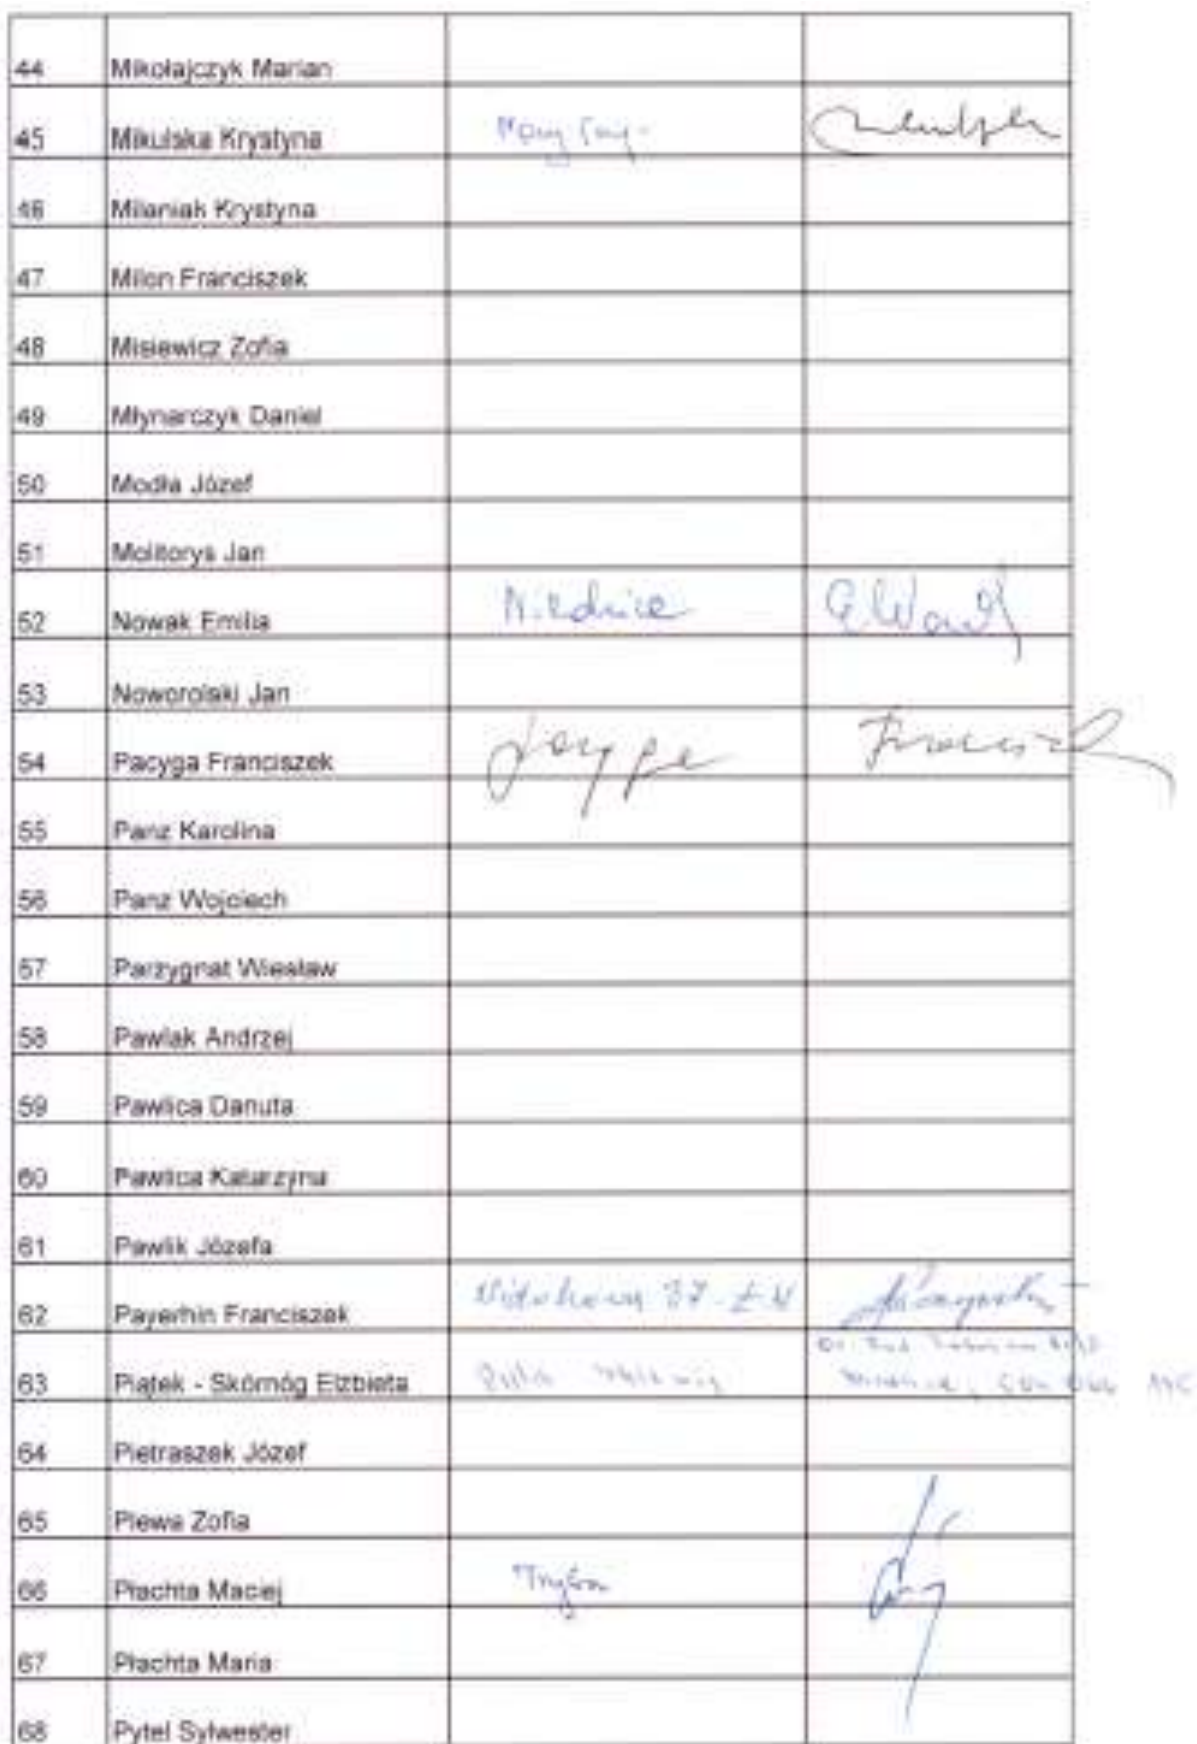 44 Mikołajczyk Marian
45 Mikulska Krystyna
46 Milaniak Krystyna
47 Milon Franciszek
48 Misiewicz Zofia
49 Młynarczyk Daniel
50 Modła Józef
51 Molitorys Jan
52 Nowak Emilia
53 Noworolski Jan
54 Pacyga Franciszek
55 Panz Karolina
56 Panz Wojciech
57 Parzygnat Wiesław
58 Pawlak Andrzej
59 Pawlica Danuta
60 Pawlica Katarzyna
61 Pawlik Józefa
62 Payerhin Franciszek 37
63 Piątek - Skórnóg Elżbieta
64 Pietraszek Józef
65 Plewa Zofia
66 Płachta Maciej
67 Płachta Maria
68 Pytel Sylwester